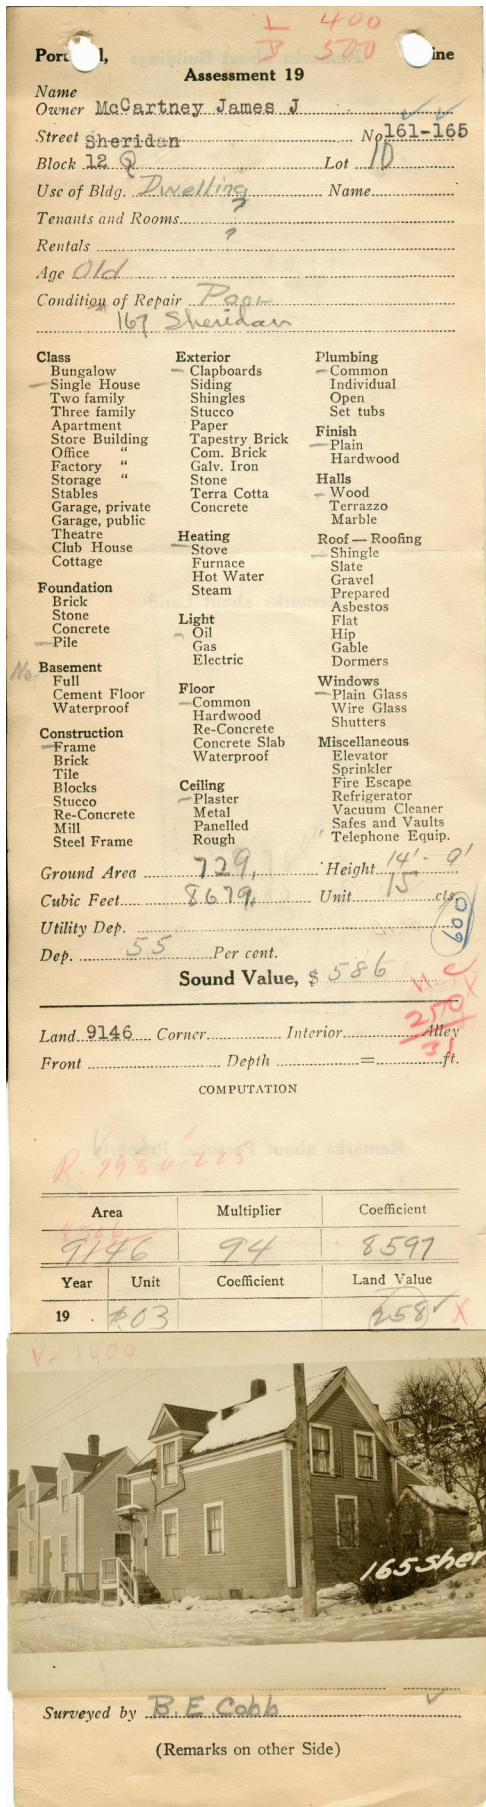 L 400
B 500
Port l, ine
Assessment 19
Name
Owner McCartney James J
Street Sheridan No 161-165
Block 12 Q Lot 10
Use of Bldg. Dwelling Name
Tenants and Rooms ?
Rentals ?
Age Old
Condition of Repair Poor
167 Sheridan
Class
Bungalow
Single House
Two family
Three family
Apartment
Store Building
Office "
Factory "
Storage "
Stables
Garage, private
Garage, public
Theatre
Club House
Cottage
Foundation
Brick
Stone
Concrete
Pile
No. Basement
Full
Cement Floor
Waterproof
Construction
Frame
Brick
Tile
Blocks
Stucco
Re-Concrete
Mill
Steel Frame
Exterior
Clapboards
Siding
Shingles
Stucco
Paper
Tapestry Brick
Com. Brick
Galv. Iron
Stone
Terra Cotta
Concrete
Heating
Stove
Furnace
Hot Water
Steam
Light
Oil
Gas
Electric
Floor
Common
Hardwood
Re-Concrete
Concrete Slab
Waterproof
Ceiling
Plaster
Metal
Panelled
Rough
Plumbing
Common
Individual
Open
Set tubs
Finish
Plain
Hardwood
Halls
Wood
Terrazzo
Marble
Roof — Roofing
Shingle
Slate
Gravel
Prepared
Asbestos
Flat
Hip
Gable
Dormers
Windows
Plain Glass
Wire Glass
Shutters
Miscellaneous
Elevator
Sprinkler
Fire Escape
Refrigerator
Vacuum Cleaner
Safes and Vaults
Telephone Equip.
Ground Area 729. Height 14' - 9'
Cubic Feet 8679. Unit 15 cts.
Utility Dep. 600
Dep. 55 Per cent.
Sound Value, $ 586
250
31
Land 9146 Corner Interior Alley
Front Depth = ft.
COMPUTATION
Area Multiplier Coefficient
9146 94 8597
Year Unit Coefficient Land Value
19 . $.03 258 X
V-1400
165 Sher
Surveyed by B. E. Cobb
(Remarks on other Side)